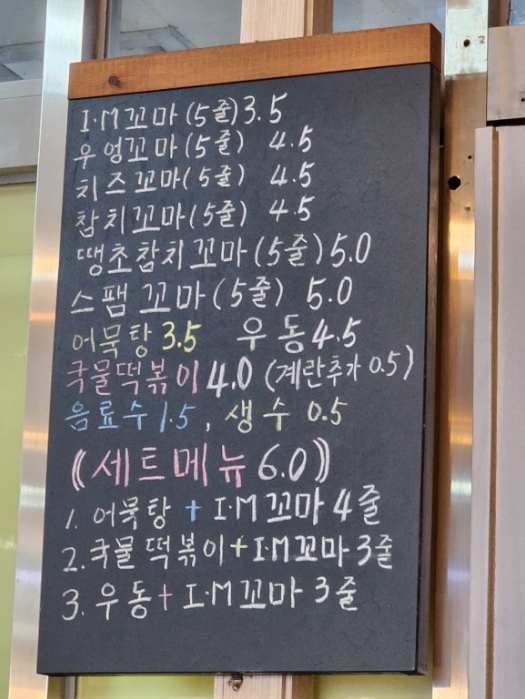 I·M꼬마(5줄)3.5
우엉꼬마(5줄) 4.5
치즈꼬마(5줄) 4.5
참치꼬마(5줄) 4.5
땡초참치꼬마(5줄)5.0
스팸 꼬마(5줄) 5.0
어묵탕 3.5 우동4.5
국물떡볶이4.0 (계란추가 0.5)
음료수 1.5, 생수 0.5
《세트메뉴 6.0》
1. 어묵탕 + I·M꼬마 4줄
2. 국물 떡볶이+I·M꼬마 3줄
3. 우동+ I·M꼬마 3줄